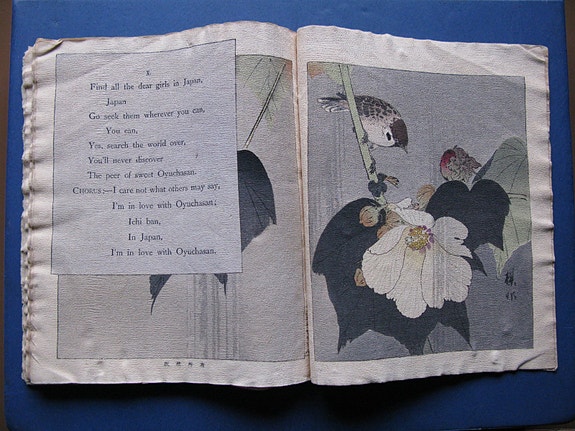 X.
Find all the dear girls in Japan,
Japan
Go seek them wherever you can,
You can,
Yes, search the world over,
You'll never discover
The peer of sweet Oyuchasan.
CHORUS:—I care not what others may say,
I'm in love with Oyuchasan;
Ichi ban,
In Japan,
I'm in love with Oyuchasan.